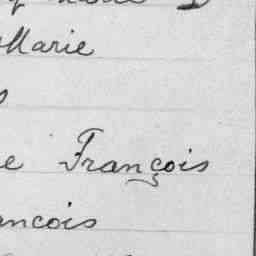 Marie
e François
ancois